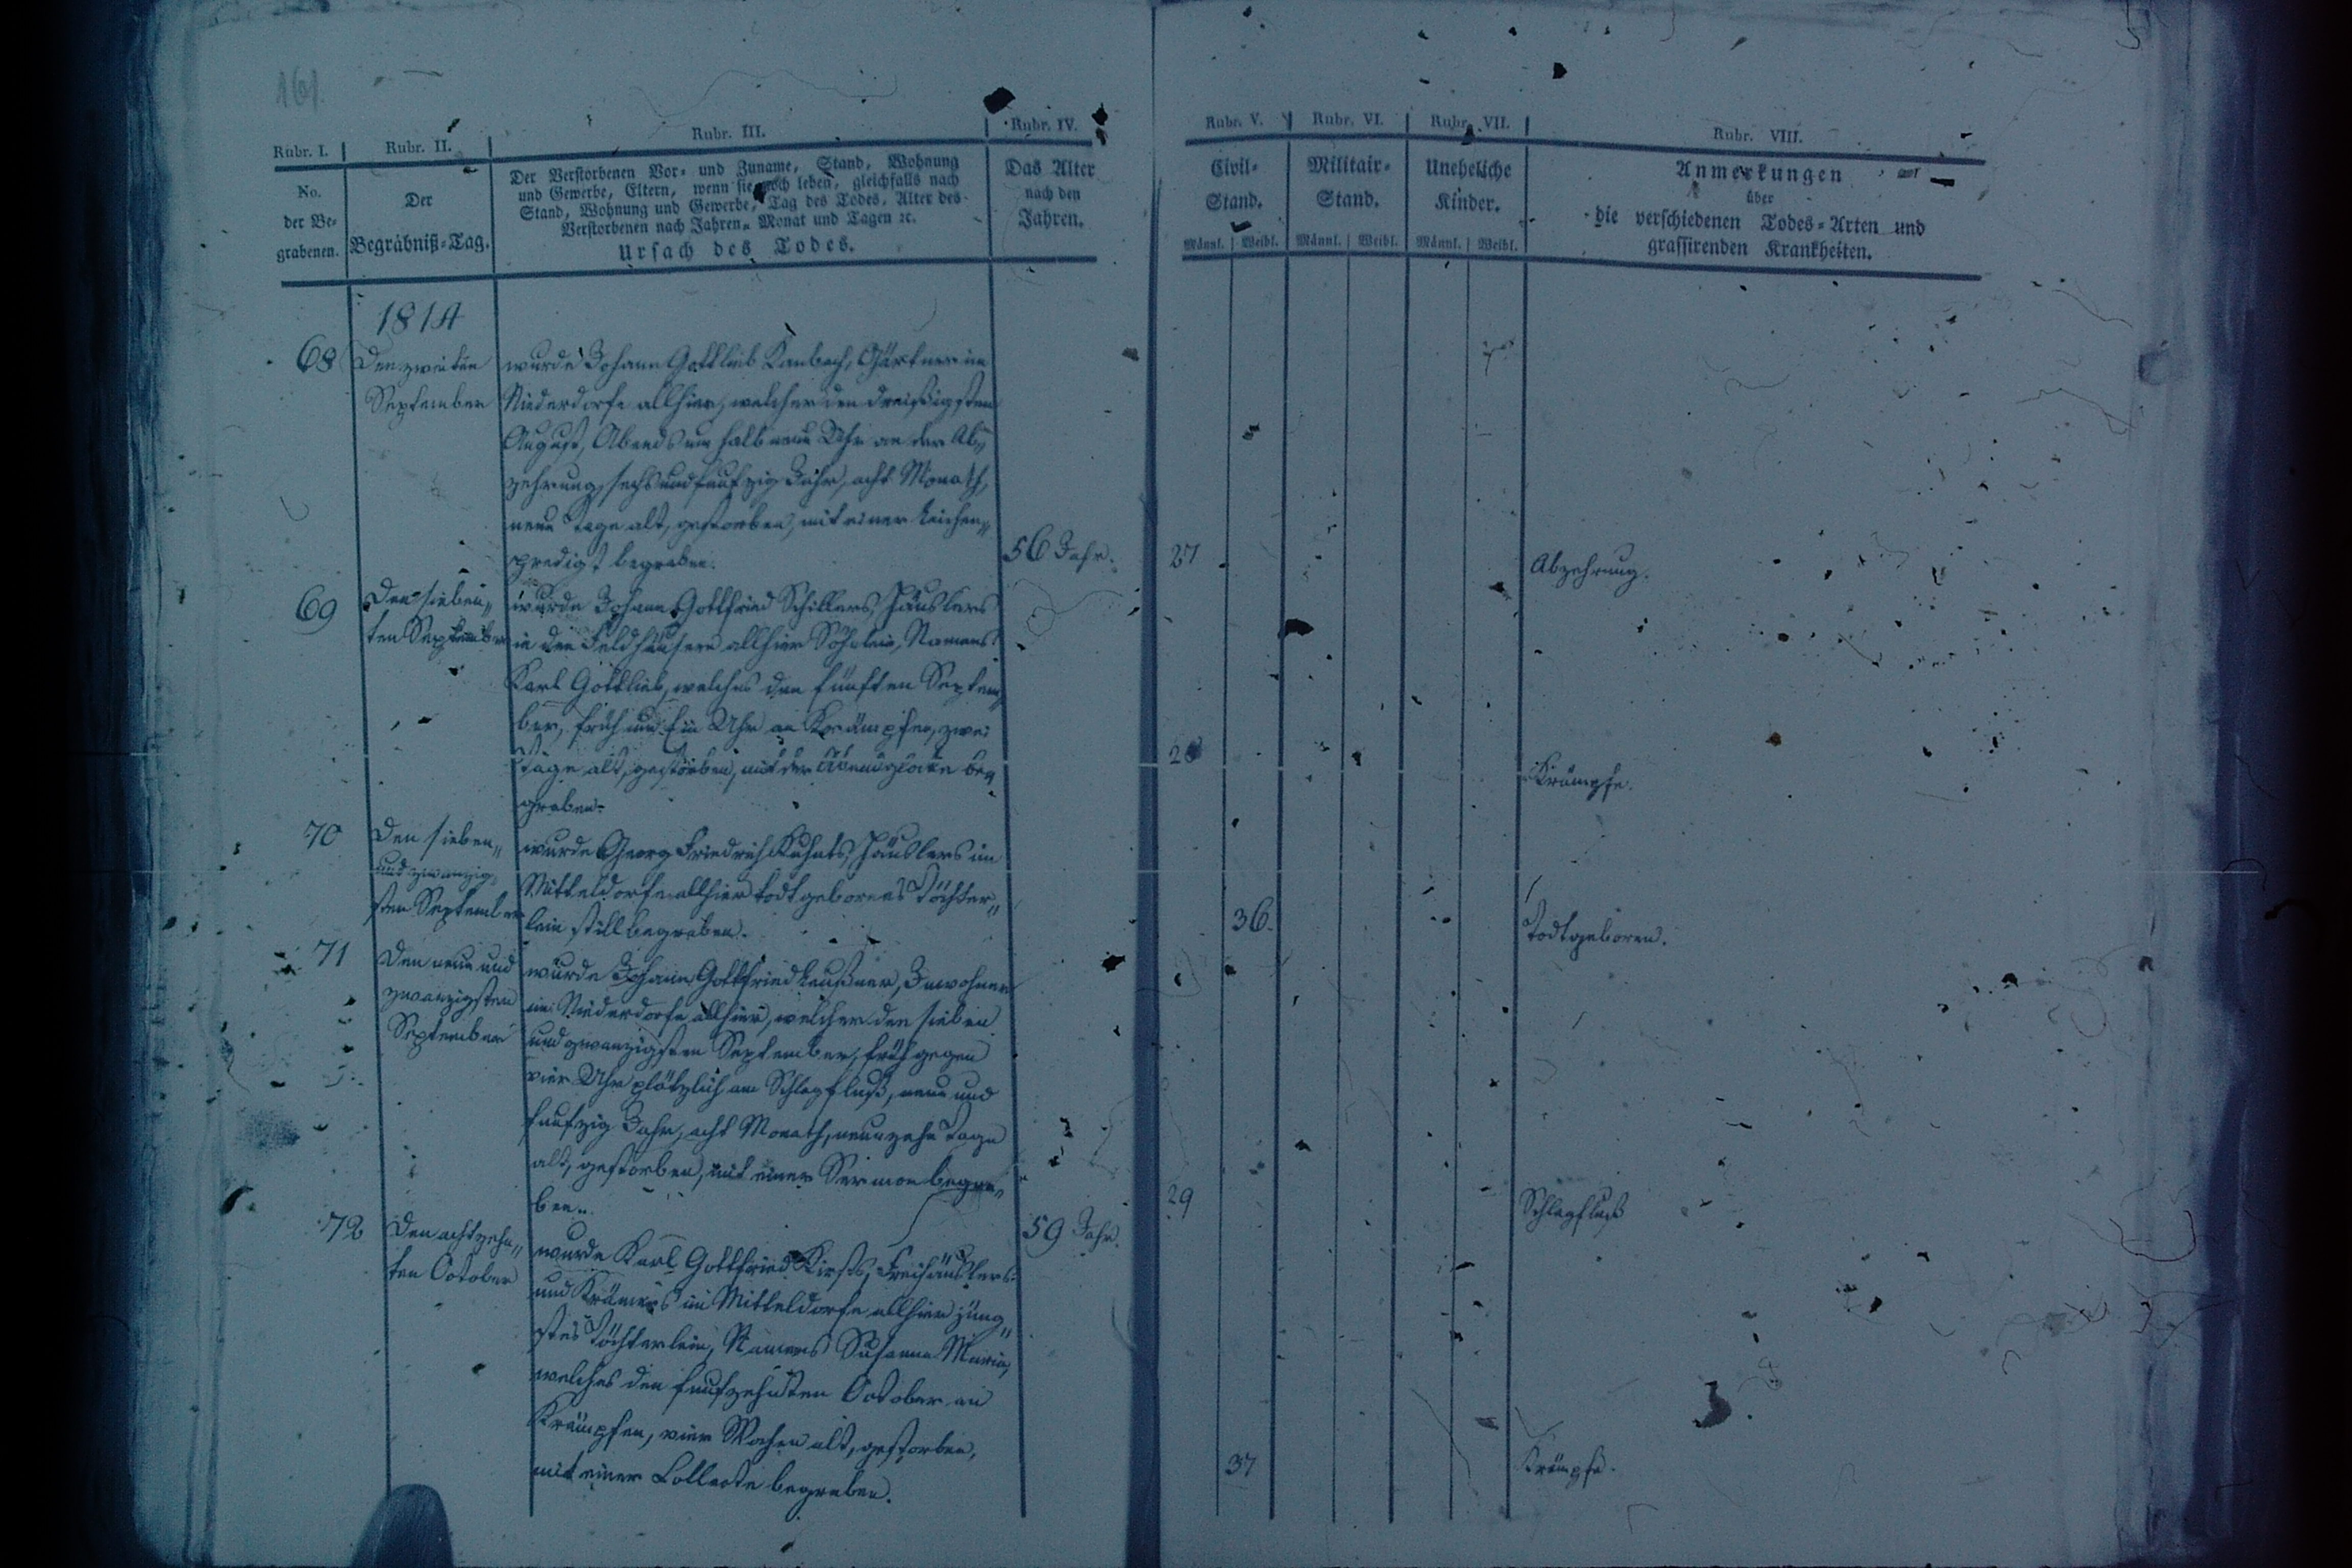 161.
Rubr. I. Rubr. II. Rubr. III. Rubr. IV. Rubr. V. Rubr. VI. Rubr. VII. Rubr. VIII.
No.
der Be-
grabenen.
Der
Begräbniß-Tag.
Der Verstorbenen Vor- und Zuname, Stand, Wohnung
und Gewerbe, Eltern, wenn sie noch leben, gleichfalls nach
Stand, Wohnung und Gewerbe, Tag des Todes, Alter des
Verstorbenen nach Jahren, Monat und Tagen ꝛc.
Ursach des Todes.
Das Alter
nach den
Jahren.
Civil-
Stand.
Männl. Weibl.
Militair-
Stand.
Männl. Weibl.
Uneheliche
Kinder.
Männl. Weibl.
Anmerkungen
über
die verschiedenen Todes-Arten und
grassirenden Krankheiten.
1814
68
Den zweiten
September
wurde Johann Gottlieb Kambach, Gärtner im
Niederdorfe allhier, welcher den dreißigsten
August, Abends um halb neun Uhr an der Ab-
zehrung, sechs und funfzig Jahr, acht Monath,
neun Tage alt, gestorben, mit einer Leichen-
predigt begraben.
56 Jahr.
27
Abzehrung.
69
Den sieben-
ten September
wurde Johann Gottfried Schillers, Häuslers
in den Feldhäusern allhier Söhnlein, Namens
Karl Gottlieb, welches den fünften Septem-
ber, früh um Uhr an Krämpfen, zwei
Tage alt, gestorben, mit der Abendglocke be-
graben.
28
Krämpfe.
70
Den sieben-
und zwanzig-
sten September
wurde Georg Friedrich Kuhnts, Häuslers im
Mitteldorfe allhier todtgebornes Töchter-
lein still begraben.
36.
Todtgeboren.
71
Den neun und
zwanzigsten
September
wurde Johann Gottfried Leußner, Inwohner
im Niederdorfe allhier, welcher den sieben
und zwanzigsten September, früh gegen
vier Uhr plötzlich am Schlagfluß, neun und
funfzig Jahr, acht Monath, neunzehn Tage
alt, gestorben, mit einer Sermon begra-
ben.
59 Jahr.
29
Schlagfluß
72
Den achtzehn-
ten October
wurde Karl Gottfried Kirsts, Freihäuslers
und Krämers im Mitteldorfe allhier jüng-
stes Töchterlein, Namens Susanna Maria,
welches den funfzehnten October an
Krämpfen, vier Wochen alt, gestorben,
mit einer Collecte begraben.
37
Krämpfe.